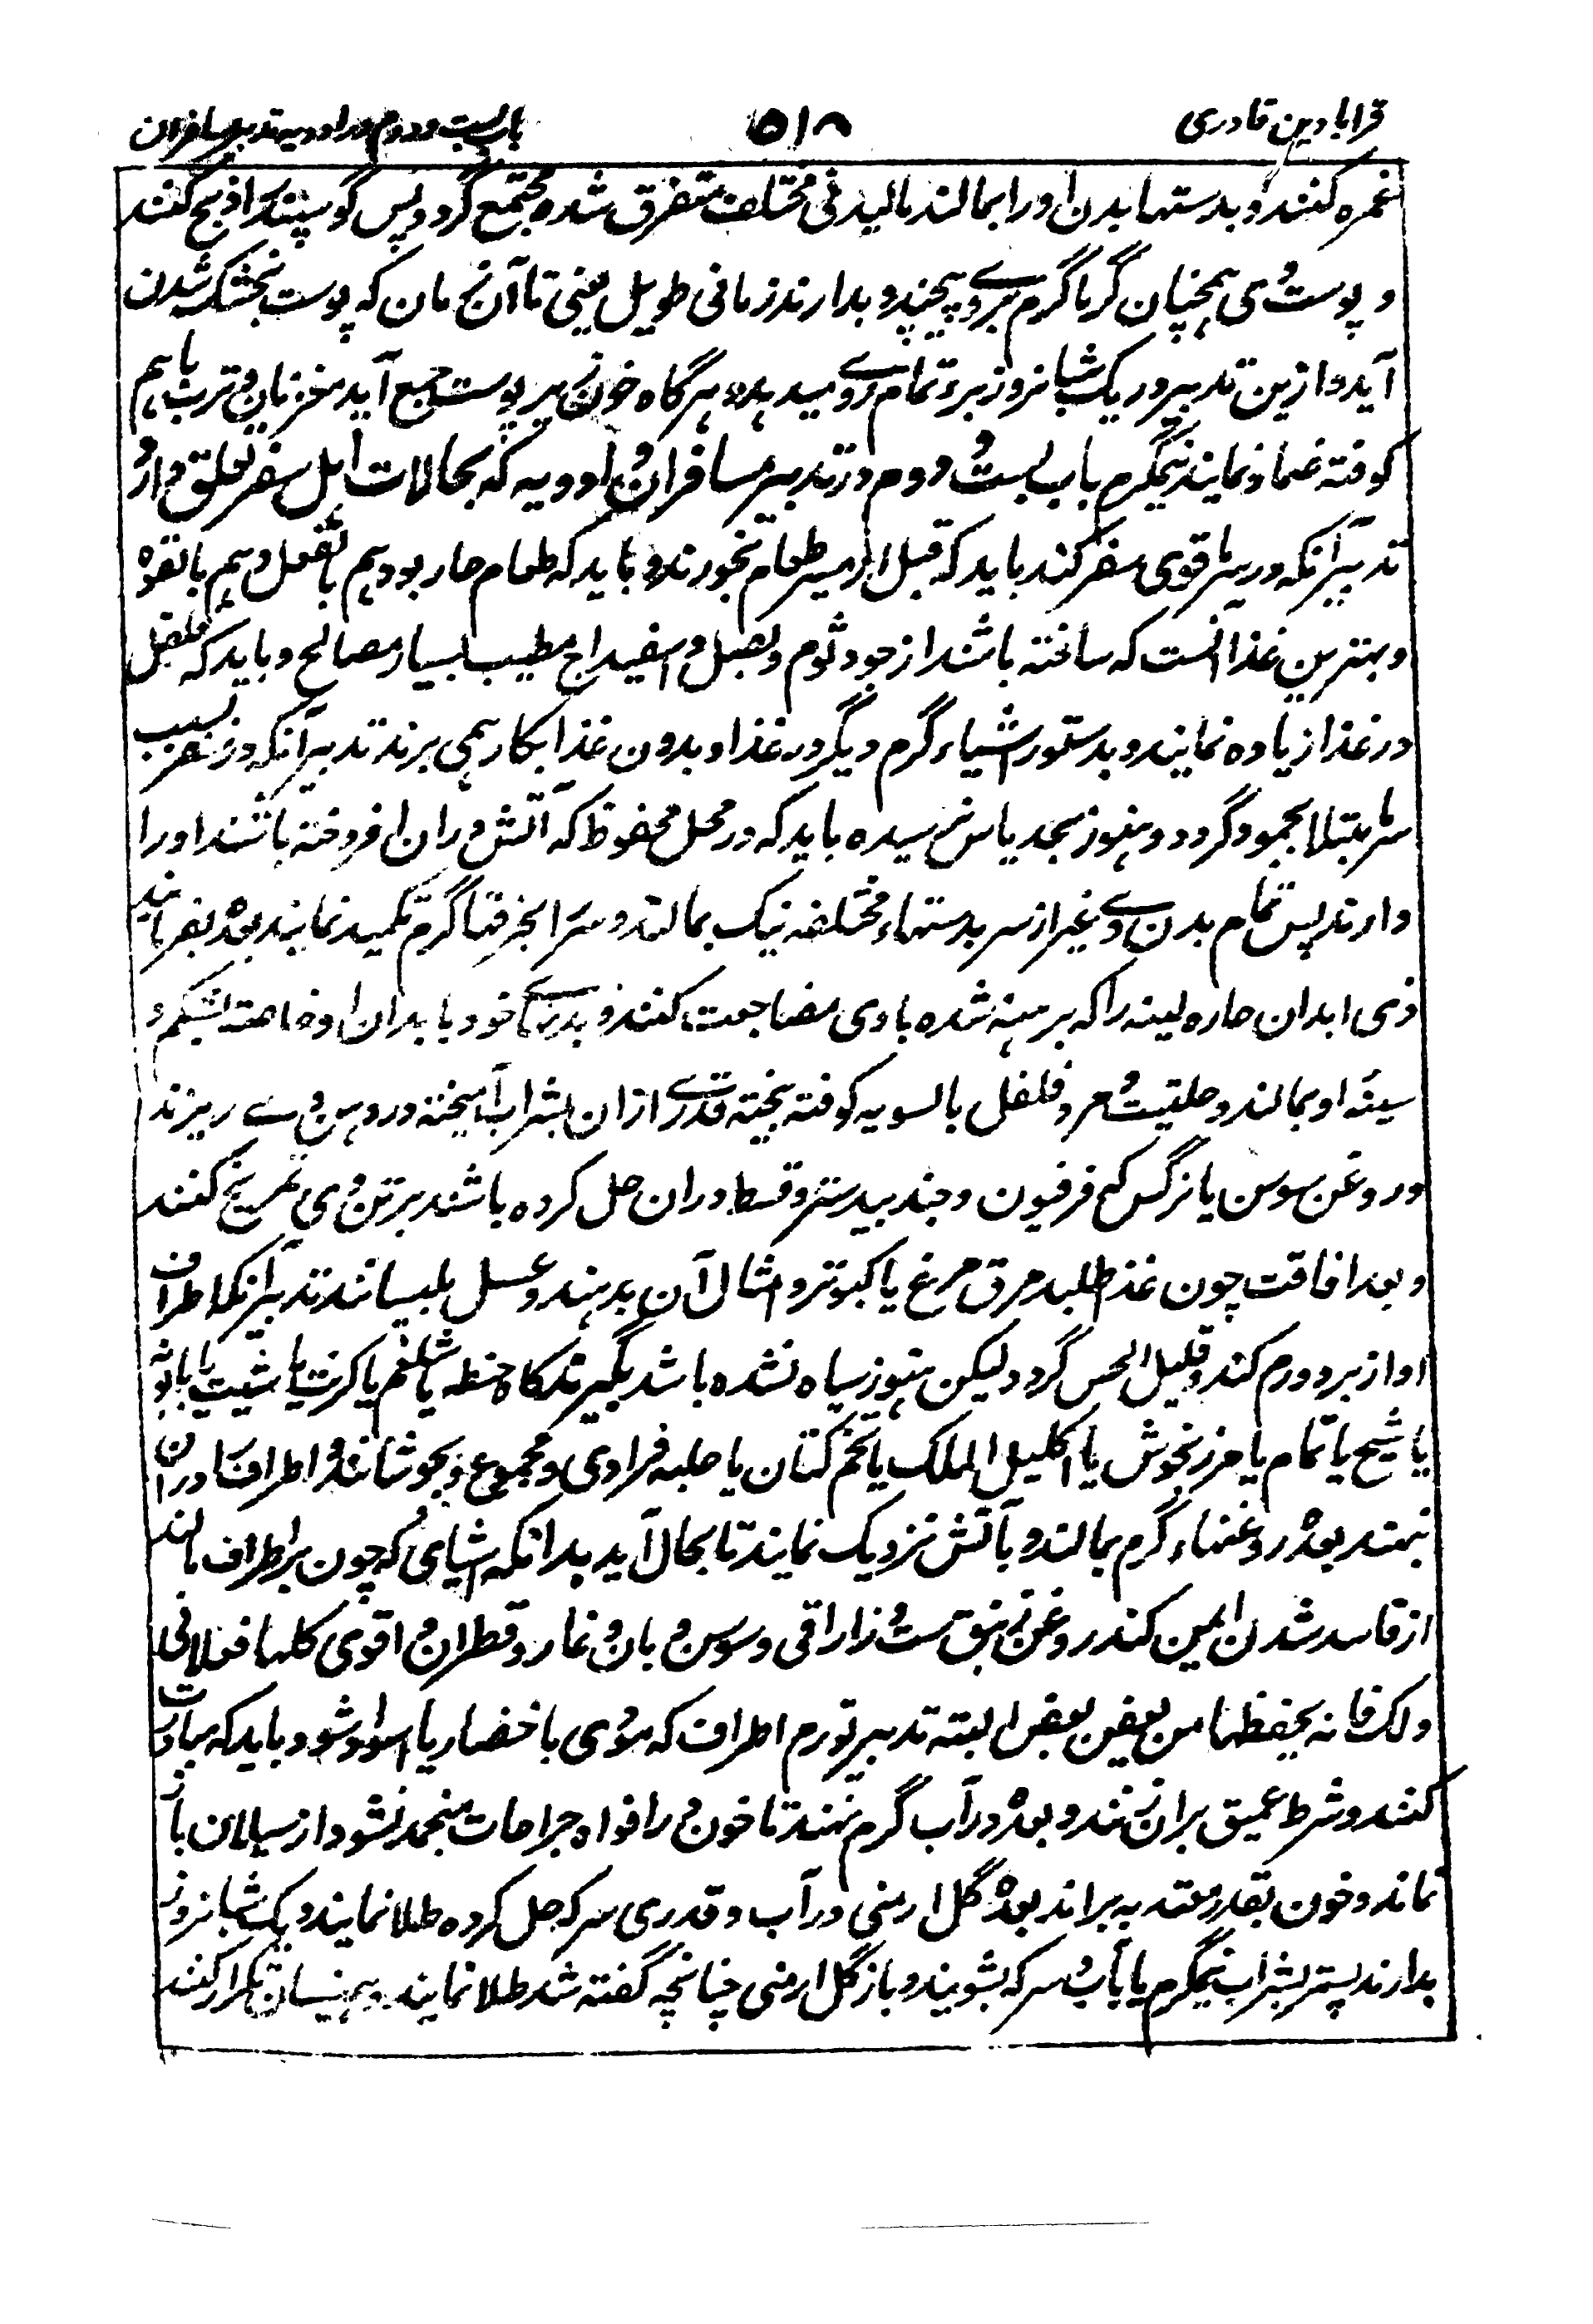 قرابادین قادری
۵۱۸
باب بست و دوم در ادویه تدبیر مسافران
غمزه کنند و بدستها بدن او را بمالند مالیدنی مختلف متفرق شده مجتمع گردد پس گوسپند را ذبح کنند
و پوست وی همچنان گرماگرم بر وے پیچند و بدارند زمانی طویل یعنی تا آن زمان که پوست بخشک شدن
آید و ازین تدبیر در یک شبانروز برء تمام روے میدهد و هرگاه خون زیر پوست جمع آید مغز نان و ترب باهم
کوفته ضماد نمایند نیمگرم باب بست و دوم در تدبیر مسافران و ادویه که بحالات اهل سفر تعلق دارد
تدبیر آنکه در سرماء قوی سفر کند باید که قبل از سیر طعام بخورند و باید که طعام حار بود هم بالفعل و هم بالقوه
و بهترین غذا آنست که ساخته باشند از جوز و ثوم و بصل و اسفیداج مطیب بسیار مصالح و باید که فلفل
در غذا زیاده نمایند و بدستور اشیاء گرم دیگر در غذا و بدون غذا بکار همی برند تدبیر آنکه در سفر بسبب
سرما مبتلا بجمود گردد و هنوز بحد یاس نرسیده باید که در محل محفوظ که آتش دران افروخته باشند او را
دارند پس تمام بدن وے غیر از سر بدستهاء مختلفه نیک بمالند و سر را بخرقها گرم تکمید نمایند بعده بفرمایند
ذی ابدان حاره لینه را که برهنه شده با وی مضاجعت کنند و بدنهاے خود با بدان او خاصته شکم و
سینه او بمالند و حلتیت و مر و فلفل بالسویه کوفته بیخته قدرے ازان بشراب آمیخته در دهن وے ریزند
و روغن سوسن یا نرگس که فرفیون و جند بیدستر و قسط دران حل کرده باشند بر تن وی تمریخ کنند
و بعد افاقت چون غذا طلبد مرق مرغ یا کبوتر و امثال آن بدهند و عسل بلیسانند تدبیر آنکه اطراف
او از برد ورم کند و قلیل الحس گردد لیکن هنوز سیاه نشده باشد بگیرند کاه حنطه یا شلغم یا کرنب یا شبت یا بابونه
یا شیح یا نمام یا مرزنجوش یا اکلیل الملک یا تخم کتان یا حلبه فرادی و مجموع و بجوشانند و اطراف را دران
نهند بعده روغنهاء گرم بمالند و بآتش نزدیک نمایند تا بحال آید بدانکه اشیای که چون بر اطراف مالند
از فاسد شدن ایمن کند روغن زنبق ست و زاراقی و سوسن و بان و غار و قطران و اقوی کلها فعلا فی
ذلک فانه یحفظها من بعض بعض البته تدبیر تورم اطراف که مؤدی باخضار یا اسوداد شود باید که مبادرت
کنند و شرط عمیق بران زنند و بعده در آب گرم نهند تا خون در افواه جراحات منجمد نشود و از سیلان باز
نماند و خون بقدر معتد به براند بعده گل ارمنی در آب و قدری سرکه حل کرده طلا نمایند و یک شبانروز
بدارند پستر بشراب نیمگرم یا بآب و سرکه بشویند و باز گل ارمنی چنانچه گفته شد طلا نمایند و همینسان تکرار کنند